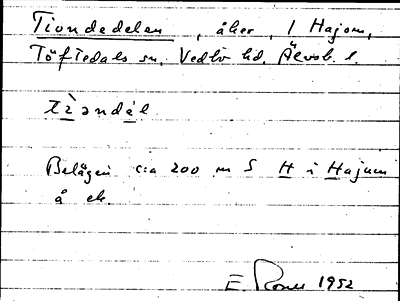 Tiondedelen, åker, / Hajom,
Töftedals sn, Vedbo hd, Älvsb. l.
tìəndál
Belägen c:a 200 m S H i Hajum
å ek.
E. 1952